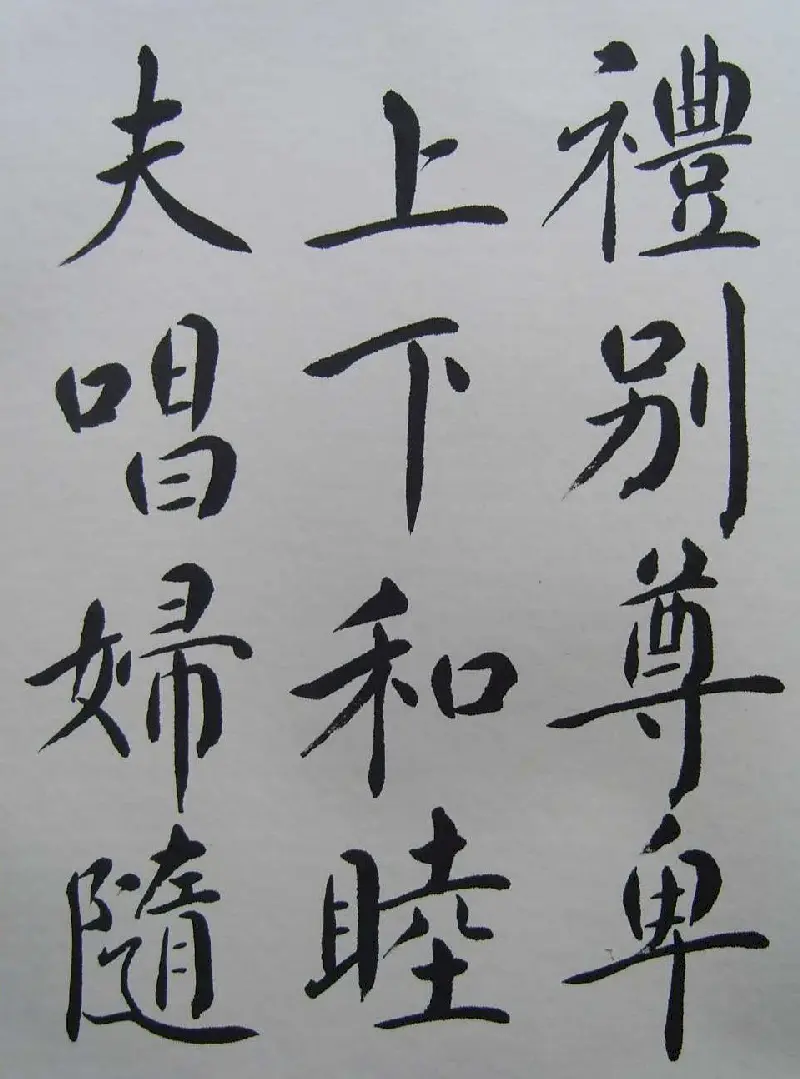 禮別尊卑
上下和睦
夫唱婦隨